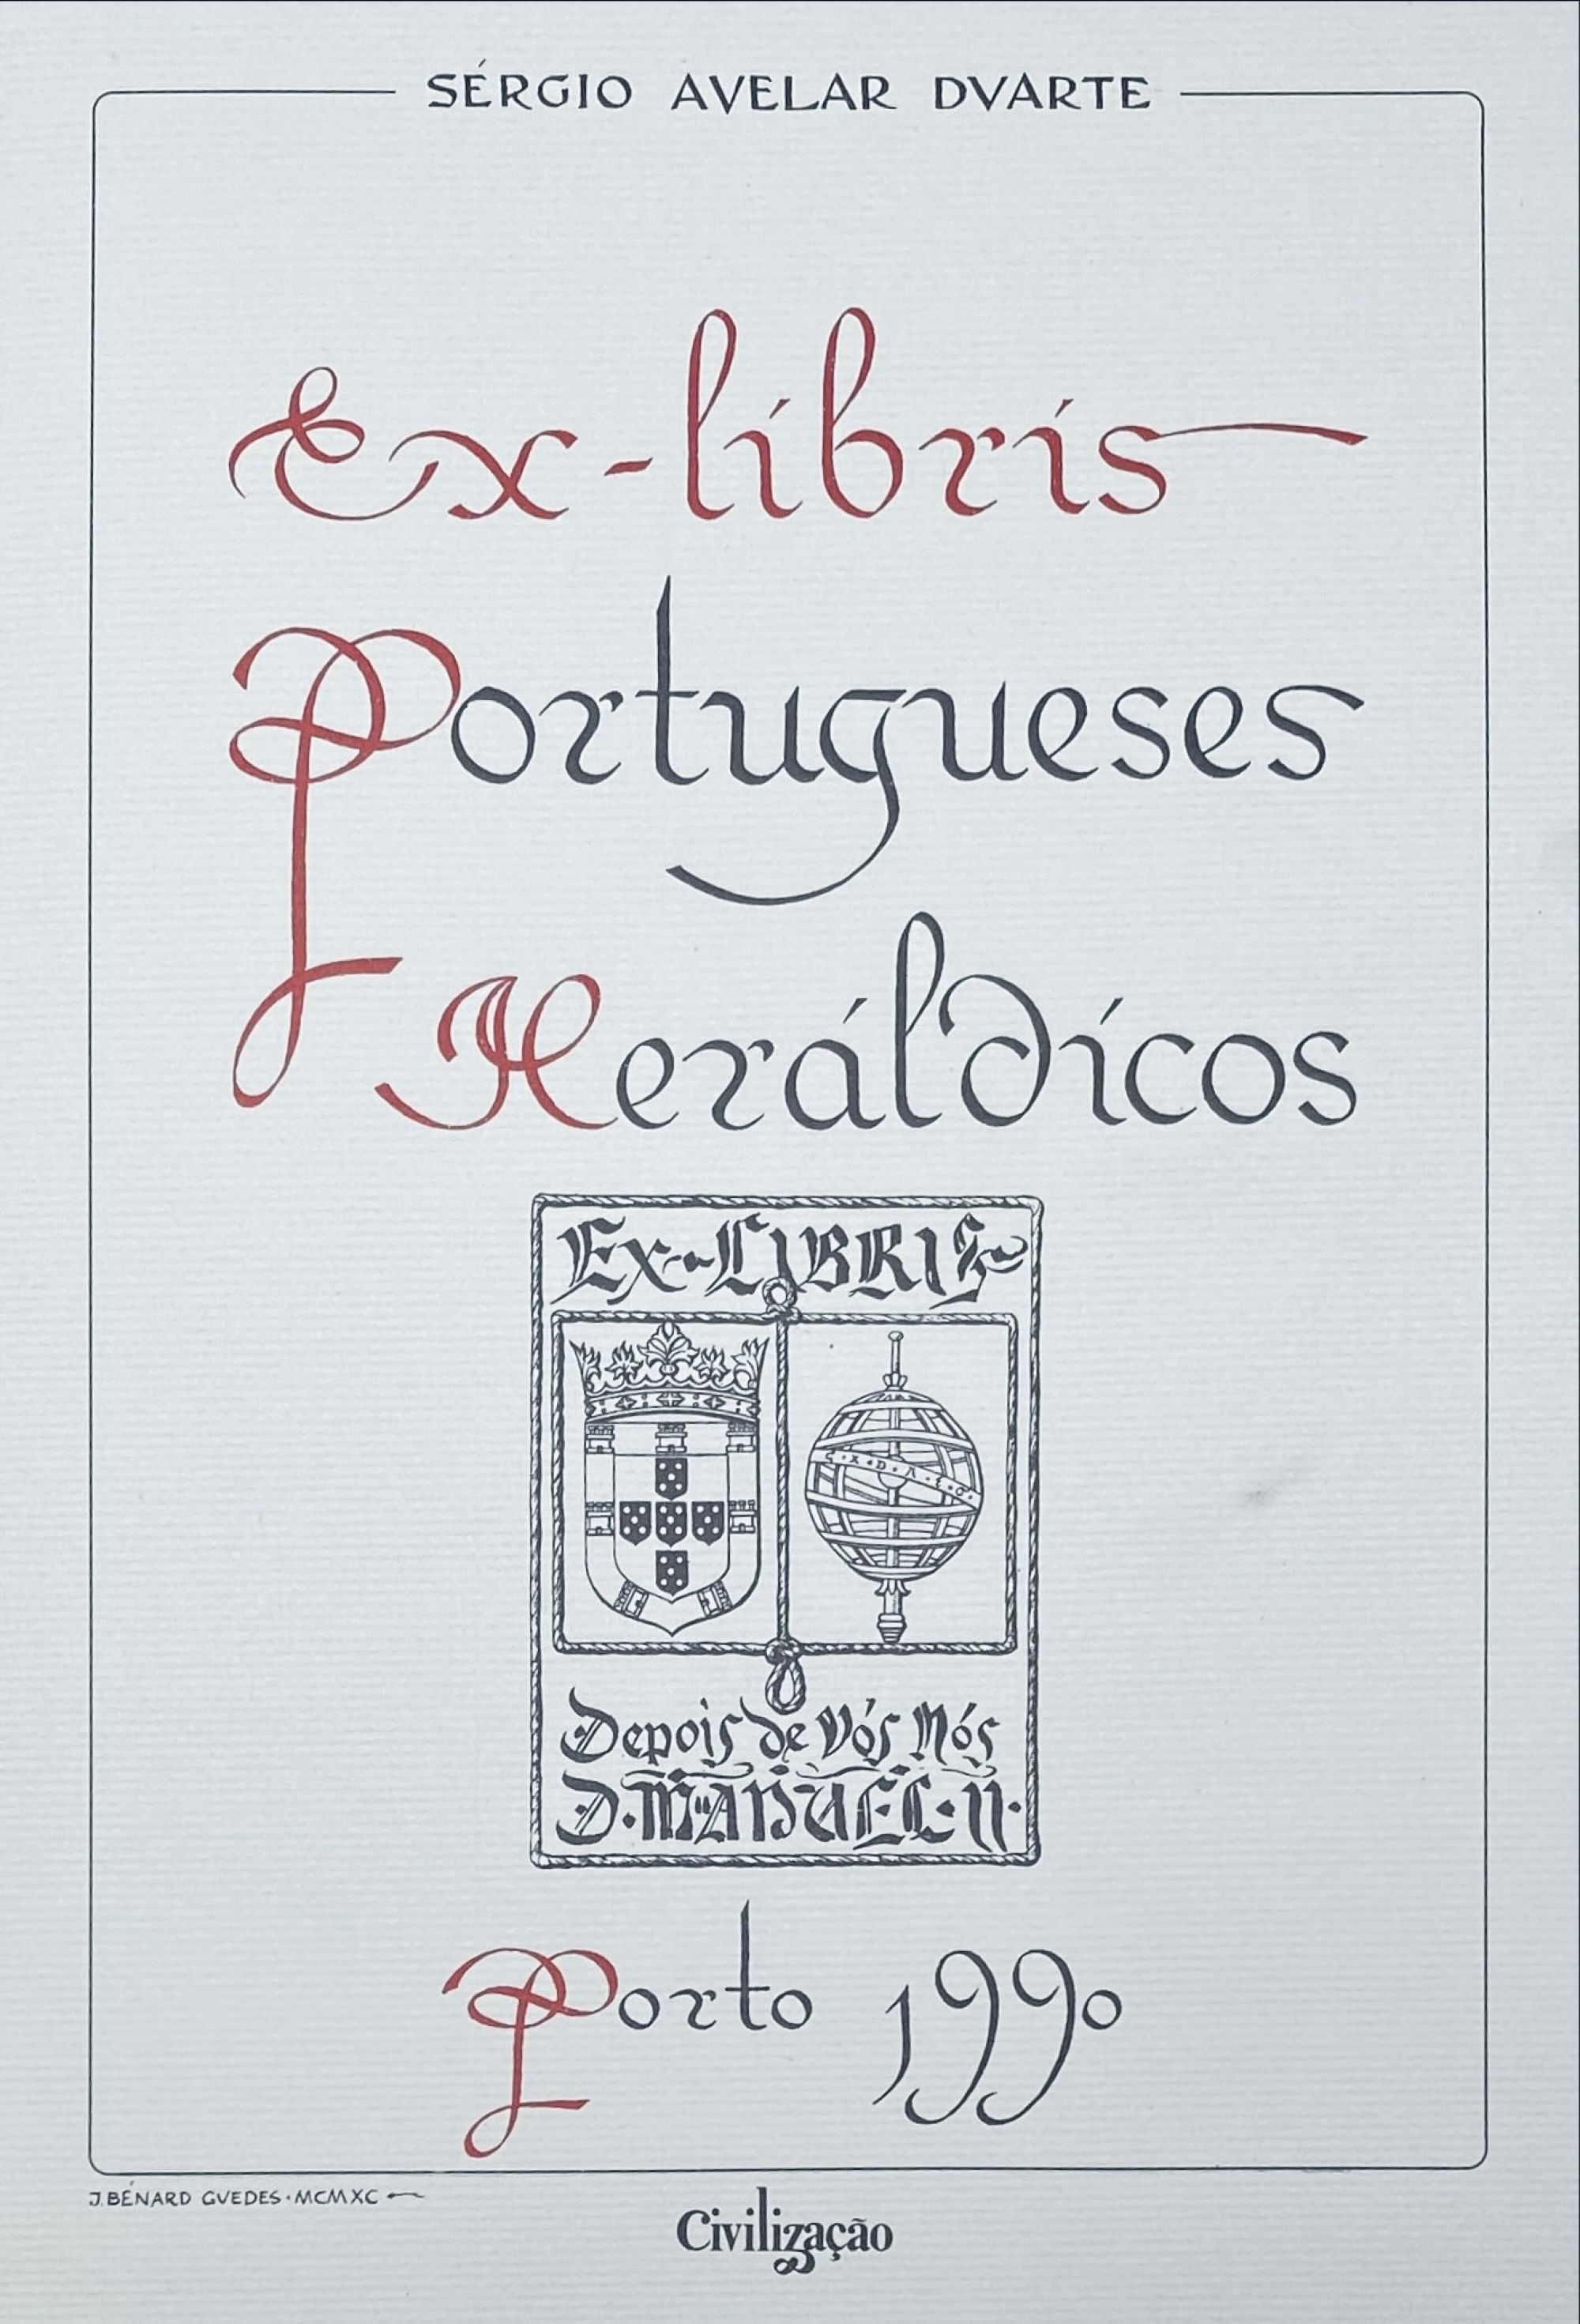 SÉRGIO AVELAR DVARTE
Ex-líbrís
Portugueses
Heráldícos
Ex-LIBRIS
EX·D·A·E·O·
Depois de Vós Nós
D·MANUEL·II·
Porto 1990
J.BÉNARD GVEDES·MCMXC
Civilização